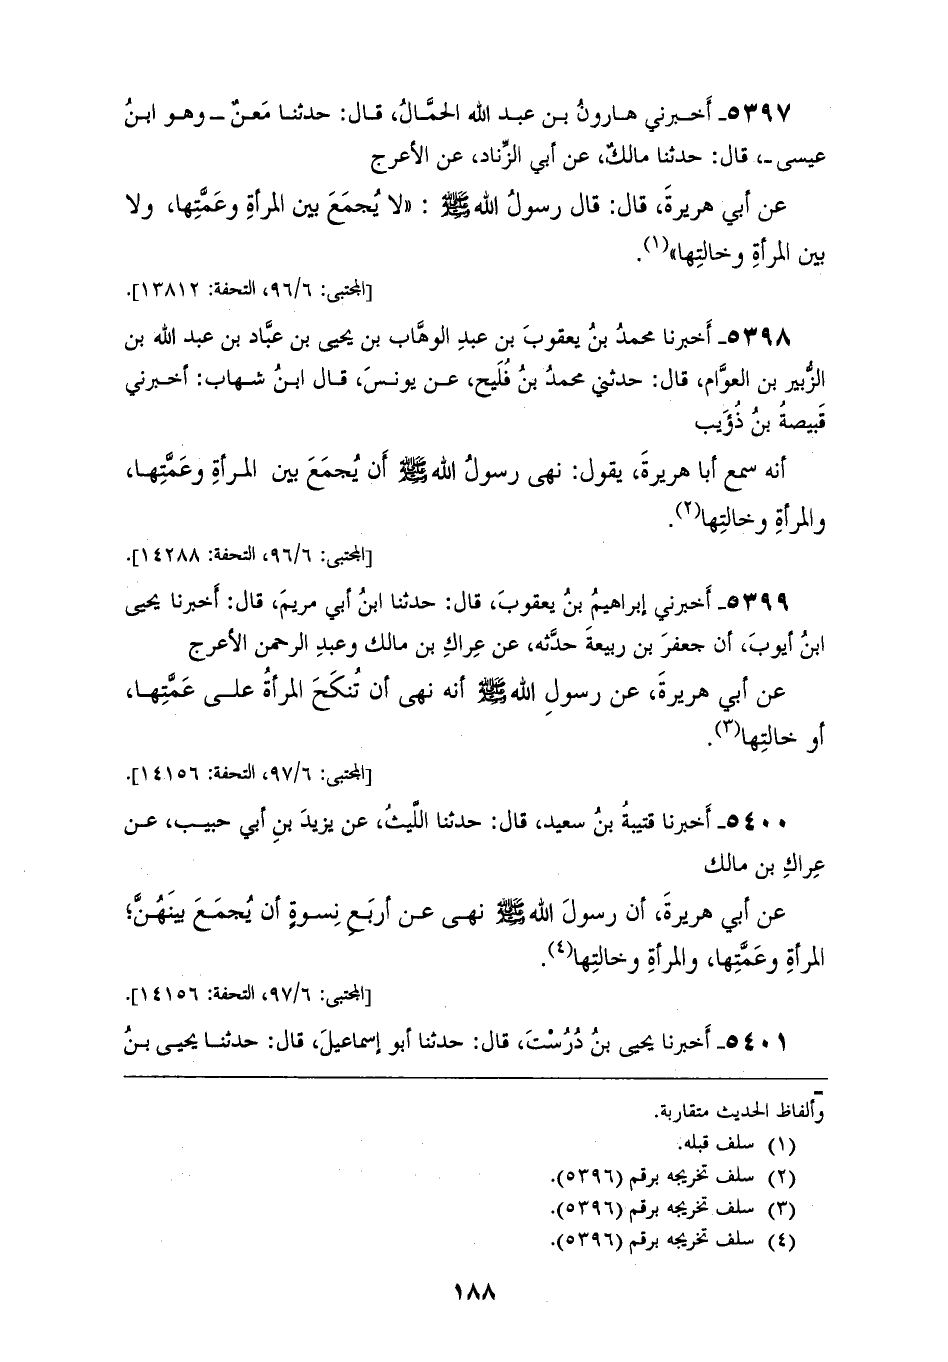 ٥٣٩٧ـ أخبرني هارونُ بن عبد الله الحمَّالُ، قال: حدثنا مَعنٌ ـ وهو ابنُ
عيسى ـ، قال: حدثنا مالكٌ، عن أبي الزِّناد، عن الأعرج
عن أبي هريرةَ، قال: قال رسولُ الله ﷺ : «لا يُجمَعَ بين المرأةِ وعَمَّتِها، ولا
بين المرأةِ وخالتِها»(١).
[المجتبى: ٩٦/٦، التحفة: ١٣٨١٢].
٥٣٩٨ـ أخبرنا محمدُ بنُ يعقوبَ بن عبدِ الوهَّاب بن يحيى بن عبَّاد بن عبد الله بن
الزُّبير بن العوَّام، قال: حدثني محمدُ بنُ فُلَيح، عن يونسَ، قال ابنُ شهاب: أخبرني
قَبيصةُ بنُ ذُؤَيب
أنه سمع أبا هريرةَ، يقول: نهى رسولُ الله ﷺ أَن يُجمَعَ بين المرأةِ وعَمَّتِها،
والمرأةِ وخالتِها(٢).
[المجتبى: ٩٦/٦، التحفة: ١٤٢٨٨].
٥٣٩٩ـ أخبرني إبراهيمُ بنُ يعقوبَ، قال: حدثنا ابنُ أبي مريمَ، قال: أخبرنا يحيى
ابنُ أيوبَ، أن جعفرَ بن ربيعةَ حدَّثه، عن عِراكِ بن مالك وعبدِ الرحمن الأعرج
عن أبي هريرةَ، عن رسولِ الله ﷺ أنه نهى أن تُنكَحَ المرأةُ على عَمَّتِها،
أو خالتِها(٣).
[المجتبى: ٩٧/٦، التحفة: ١٤١٥٦].
٥٤٠٠ـ أخبرنا قتيبةُ بنُ سعيد، قال: حدثنا اللَّيثُ، عن يزيدَ بنِ أبي حبيب، عن
عِراكِ بن مالك
عن أبي هريرةَ، أن رسولَ الله ﷺ نهى عن أربَعِ نِسوةٍ أن يُجمَعَ بينَهُنَّ؛
المرأةِ وعَمَّتِها، والمرأةِ وخالتِها(٤).
[المجتبى: ٩٧/٦، التحفة: ١٤١٥٦].
٥٤٠١ـ أخبرنا يحيى بنُ دُرُسْتَ، قال: حدثنا أبو إسماعيلَ، قال: حدثنا يحيى بنُ
وألفاظ الحديث متقاربة.
(١) سلف قبله.
(٢) سلف تخريجه برقم (٥٣٩٦).
(٣) سلف تخريجه برقم (٥٣٩٦).
(٤) سلف تخريجه برقم (٥٣٩٦).
١٨٨